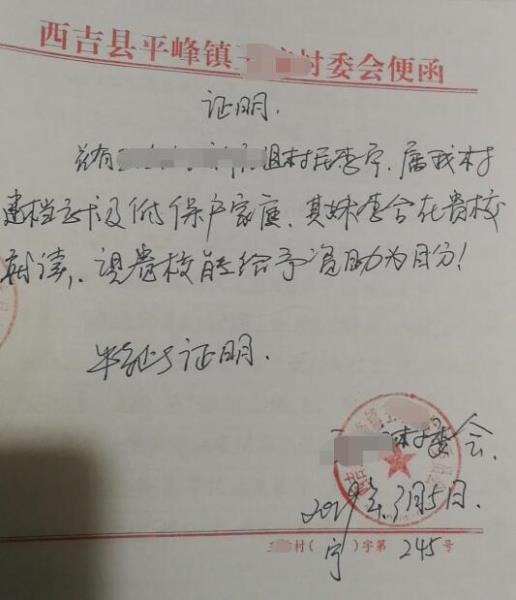 西吉县平峰镇 村委会便函
证明.
兹有 组村民李宁,属我村
建档立卡及低保户家庭,其妹李合在贵校
就读,望贵校能给予资助为目分!
特此证明.
村委会.
月5日.
村( 宁 )字第 245 号